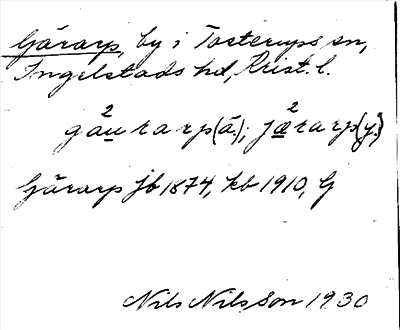 Gärarp, by i Tosterups sn,
Ingelstads hd, Krist. l.
ga²u̲rarp (ä.); jæ̲²rarp (y.)
Gärarp jb 1874, kb 1910, G
Nils Nilsson 1930